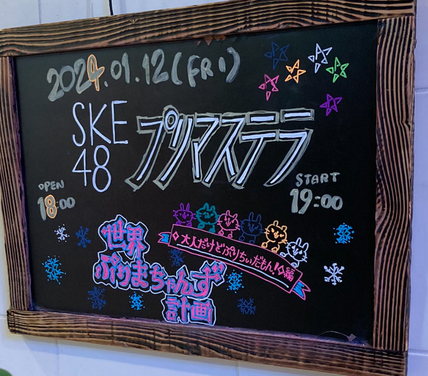 2024.01.12(FRI)
SKE
48
プリマステラ
OPEN
18:00
START
19:00
世界
ぷりまちゃんず
計画
◇大人だけどぷりちぃだもん!◇編